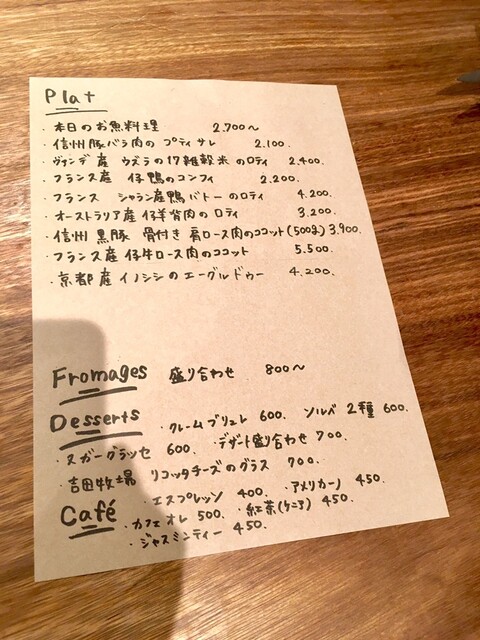 Plat
・本日のお魚料理 2.700〜
・信州豚バラ肉の プティサレ 2.100.
・ヴァンデ産 ウズラの17雑穀米のロティ 2.400.
・フランス産 仔鴨のコンフィ 2.200.
・フランス シャラン産鴨バトーのロティ 4.200.
・オーストラリア産 仔羊背肉のロティ 3.200.
・信州黒豚 骨付き肩ロース肉のココット(500g) 3,900.
・フランス産仔牛ロース肉のココット 5.500.
・京都産イノシシのエーグルドゥー 4.200.
Fromages 盛り合わせ 800〜
Desserts ・クレームブリュレ 600. ソルベ 2種 600.
・ヌガーグラッセ 600. ・デザート盛り合わせ 700.
・吉田牧場 リコッタチーズのグラス 700.
Café ・エスプレッソ 400. ・アメリカーノ 450.
・カフェオレ 500. ・紅茶(ケニア) 450.
・ジャスミンティー 450.